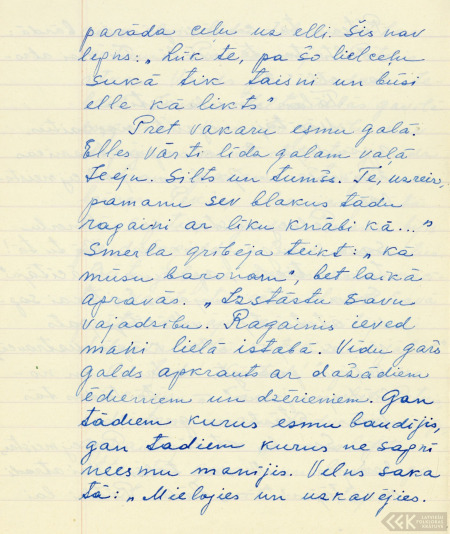 parāda ceļu uz elli. Šis nav
legns: „Lūk te, pa šo lielceļu
sukā tik taisni un būsi
ellē kā likts"
Pret vakaru esmu galā.
Elles vārti līdz galam vaļā
Ieeju. Silts un tumšs. Te, uzreiz,
pamanu sev blakus tādu
ragaini ar līku knābi kā..."
Smerla gribēja teikt: „kā
mūsu baronam", bet laikā
apravās. „Izstāstu savu
vajadzību. Ragainis ieved
mani lielā istabā. Vidū garš
galds apkrauts ar dažādiem
ēdieniem un dzērieniem. Gan
tādiem kurus esmu baudījis,
gan tādiem kurus ne sapnī
neesmu manījis. Velns saka
tā: „Mielojies un uzkavējies.
LFK
LATVIEŠU
FOLKLORAS
KRĀTUVE